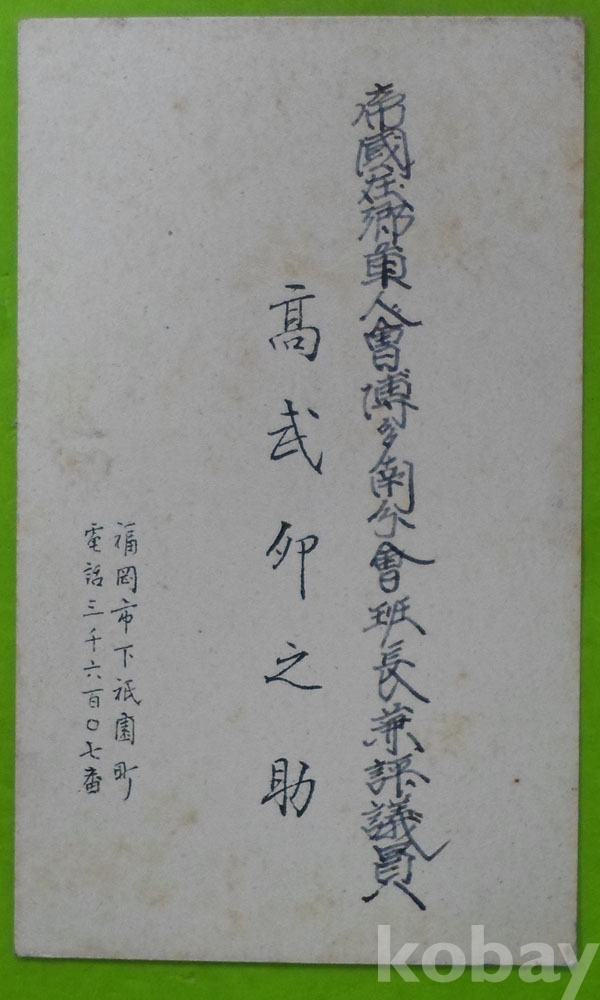 帝國在郷軍人會博多南分會班長兼評議員
髙武卯之助
福岡市下祇園町
電話三千六百〇七番
kobay